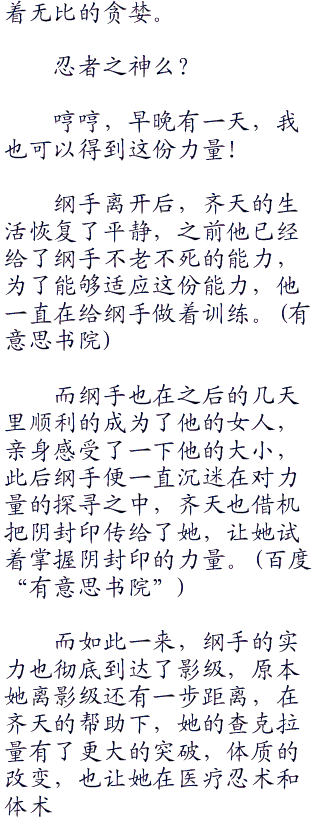 着无比的贪婪。
忍者之神么？
哼哼，早晚有一天，我
也可以得到这份力量！
纲手离开后，齐天的生
活恢复了平静，之前他已经
给了纲手不老不死的能力，
为了能够适应这份能力，他
一直在给纲手做着训练。（有
意思书院）
而纲手也在之后的几天
里顺利的成为了他的女人，
亲身感受了一下他的大小，
此后纲手便一直沉迷在对力
量的探寻之中，齐天也借机
把阴封印传给了她，让她试
着掌握阴封印的力量。（百度
“有意思书院”）
而如此一来，纲手的实
力也彻底到达了影级，原本
她离影级还有一步距离，在
齐天的帮助下，她的查克拉
量有了更大的突破，体质的
改变，也让她在医疗忍术和
体术